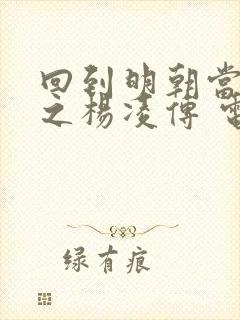 回到明朝当
之杨凌传
绿有痕